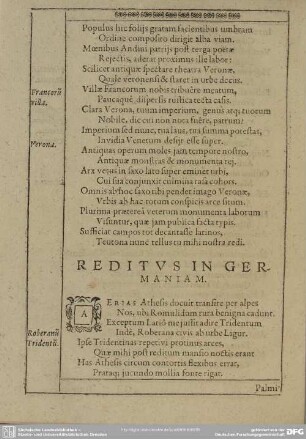 Populus hic folijs gratam facientibus umbram
Ordine composito dirigit alba viam.
Mœnibus Andini patrijs post terga poëtæ
Rejectis, aderat proximus ille labor:
Scilicet antiquæ spectare theatra Veronæ,
Qualè veronensi & staret in urbe decus.
Francorū
villa.
Villæ Francorum nobis tribuêre meatum,
Paucaque dispersis rustica tecta casis.
Verona.
Clara Verona, tuum imperium, genus atque tuorum
Nobile, dic cui non nota fuêre, patrum?
Imperium sed nunc, tua laus, tua summa potestas,
Invidia Venetum desijt esse super.
Antiquas operum moles jam tempore nostro,
Antiquæ monstras & monumenta
Arx vetus in saxo lato super eminet urbi,
Cui sua conjunxit culmina rasa cohors.
Omnis ab hoc saxo tibi pendet imago Veronæ,
Urbis ab hac totum conspicis arce situm.
Plurima prætereà veterum monumenta laborum
Visuntur, quæ jam publica facta typis.
Sufficiat campos tot decantasse latinos,
Teutona nunc tellus to mihi nostra redi.
REDITVS IN GER-
MANIAM.
AERIAS Athesis docuit transire per alpes
Nos, ubi Romulidum rura benigna cadunt.
Roboranū
Tridentū.
Exceptum Lario me jussit adire Tridentum
Indè, Roberana civis ab urbe Ligur.
Ipse Tridentinas repetivi protinus arces,
Quæ mihi post reditum mansio noctis erant
Has Athesis circum contortis flexibus errat,
Prataque jucundo mollia fonte rigat.
Palmi